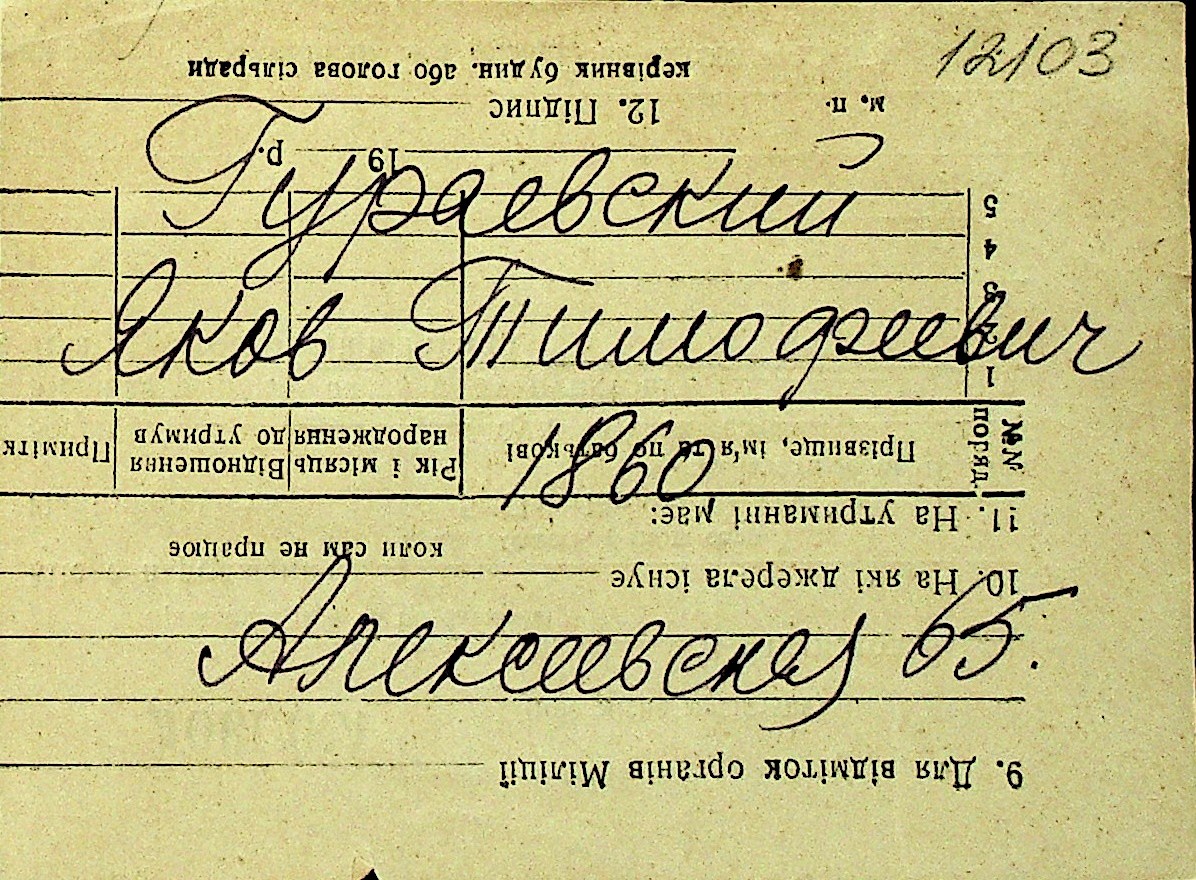 12103
Гураевский
Яков Тимофеевич
1860
Алексеевская 65.
9. Для відміток органів Міліції
10. На які джерела існує
коли сам не працює
11. На утриманні має:
№№ поряд.
Прізвище, ім'я та по батькові
Рік і місяць народження
Відношення до утримув
Примітк
1
2
3
4
5
19 р.
м. п. 12. Підпис
керівник будин. або голова сільради